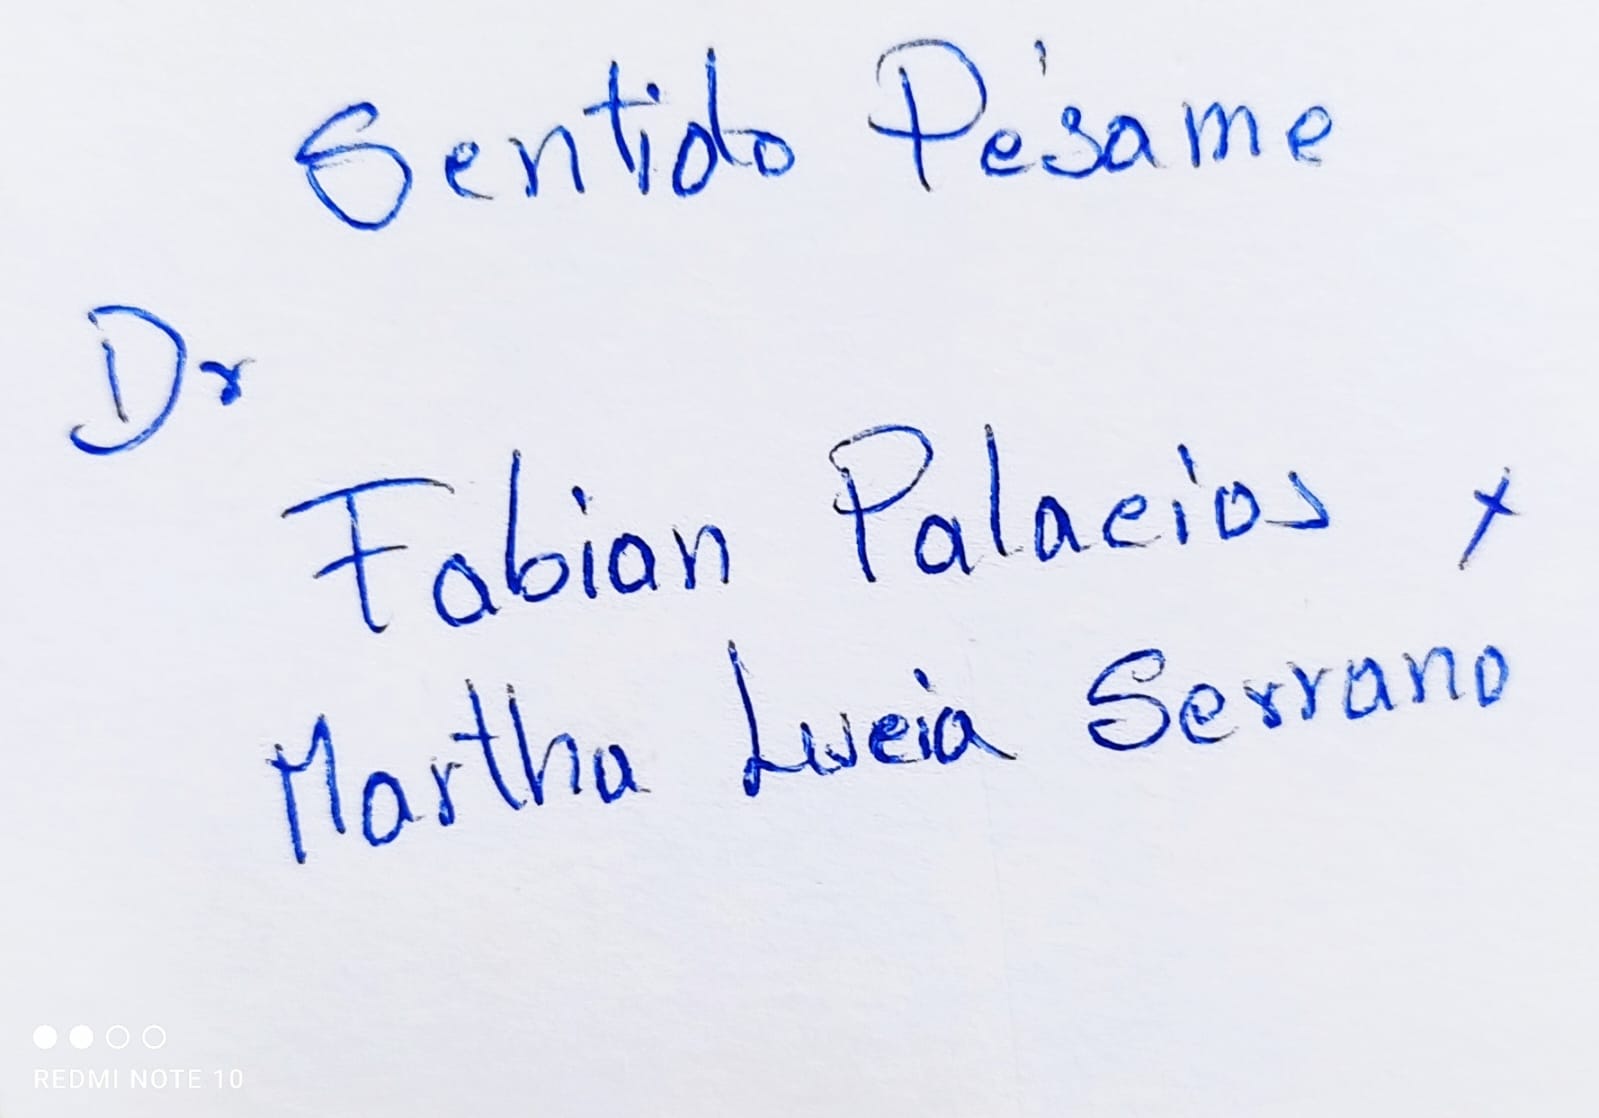 Sentido Pésame
Dr
Fabian Palacios y
Martha Lucia Serrano
REDMI NOTE 10